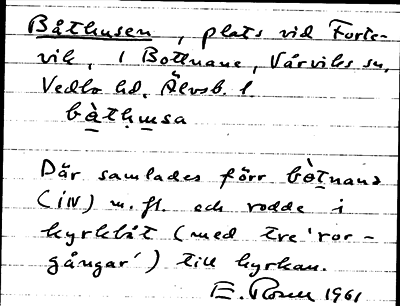 Båthusen, plats vid Furte-
vik, i Bottnane, Vårviks sn,
Vedbo hd. Älvsb. l.
bàtḥusa
Där samlades förr bòtnanə
(iN) m.fl. och rodde i
kyrkbåt (med tre 'ror-
gångar') till kyrkan.
E. 1961